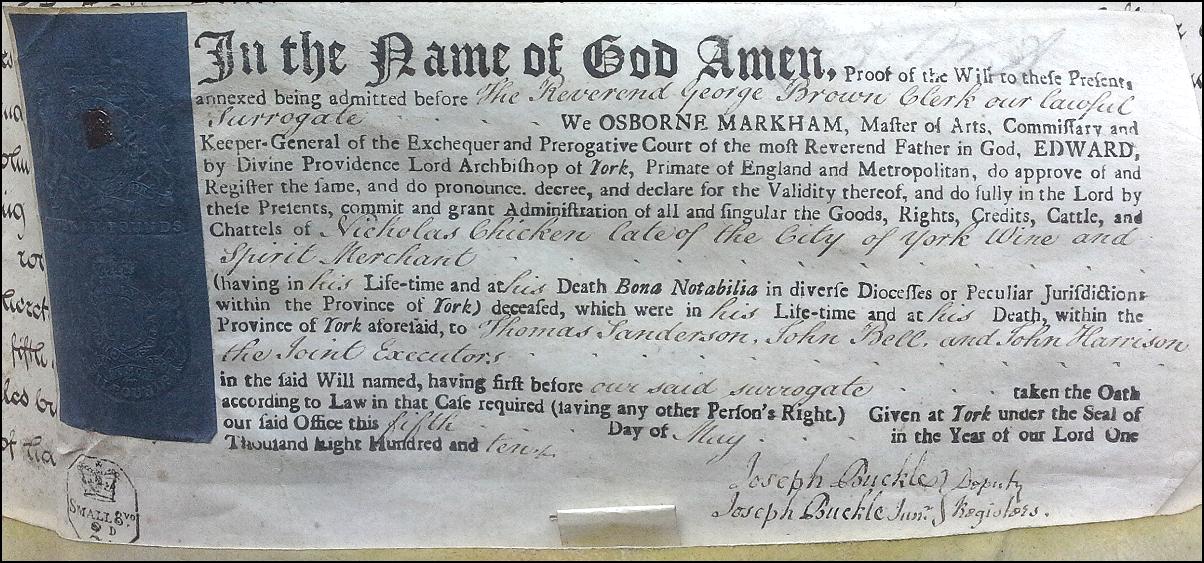 In the Name of God Amen. Proof of the Will to theſe Preſents
annexed being admitted before The Reverend George Brown Clerk our lawful
Surrogate We OSBORNE MARKHAM, Maſter of Arts, Commiſſary and
Keeper-General of the Exchequer and Prerogative Court of the moſt Reverend Father in God, EDWARD,
by Divine Providence Lord Archbiſhop of York, Primate of England and Metropolitan, do approve of and
Regiſter the ſame, and do pronounce, decree, and declare for the Validity thereof, and do fully in the Lord by
theſe Preſents, commit and grant Adminiſtration of all and ſingular the Goods, Rights, Credits, Cattle, and
Chattels of Nicholas Chicken late of the City of York Wine and
Spirit Merchant
(having in his Life-time and at his Death Bona Notabilia in diverſe Dioceſſes or Peculiar Juriſdictions
within the Province of York) deceaſed, which were in his Life-time and at his Death, within the
Province of York aforeſaid, to Thomas Sanderson, John Bell, and John Harrison
the Joint Executors
in the ſaid Will named, having firſt before our said surrogate taken the Oath
according to Law in that Caſe required (ſaving any other Perſon's Right.) Given at York under the Seal of
our ſaid Office this fifth Day of May in the Year of our Lord One
Thouſand Eight Hundred and ten
Joseph Buckle } Deputy
Joseph Buckle Junr. } Registers.
SMALL 8vo
2 D